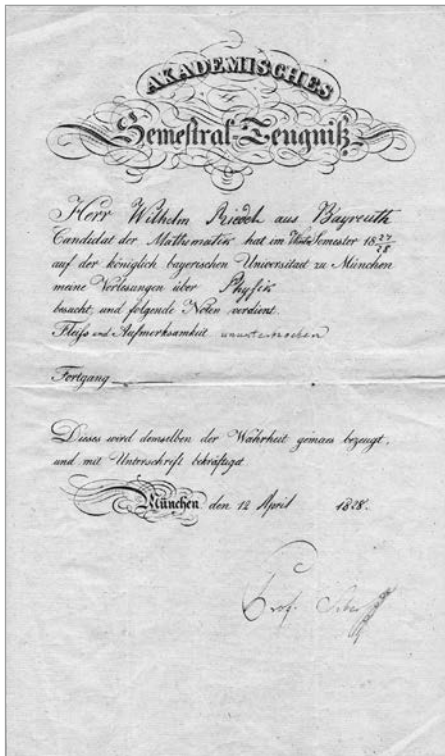 AKADEMISCHES
Semestral-Zeugniß
Herr Wilhelm Riedel aus Bayreuth
Candidat der Mathematik hat im Semester 18 27/28
auf der königlich bayerischen Universitaet zu München
meine Vorlesungen über Physik
besucht, und folgende Noten verdient.
Fleiss und Aufmerksamkeit
Fortgang
Dieses wird demselben der Wahrheit gemaes bezeugt,
und mit Unterschrift bekräftiget
München den 12 April 1828.
Prof.